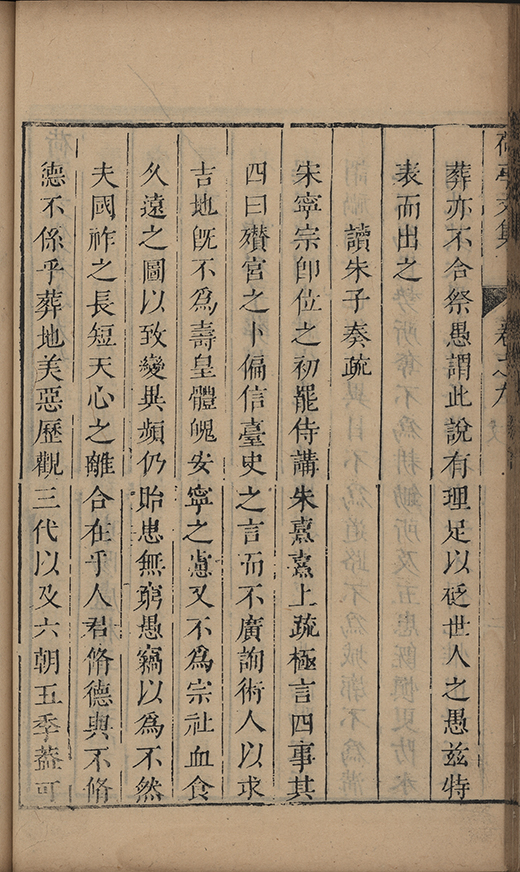 葬亦不合祭愚謂此說有理足以砭世人之愚兹特
表而出之
讀朱子奏疏
宋寧宗卽位之初罷侍講朱熹熹上疏極言四事其
四曰攅宮之卜偏信臺史之言而不廣詢術人以求
吉地旣不爲壽皇體魄安寧之慮又不爲宗社血食
久遠之圖以致變異頻仍貽患無窮愚竊以為不然
夫國祚之長短天心之離合在乎人君脩德與不脩
德不係乎葬地美惡歷觀三代以及六朝五季葢可